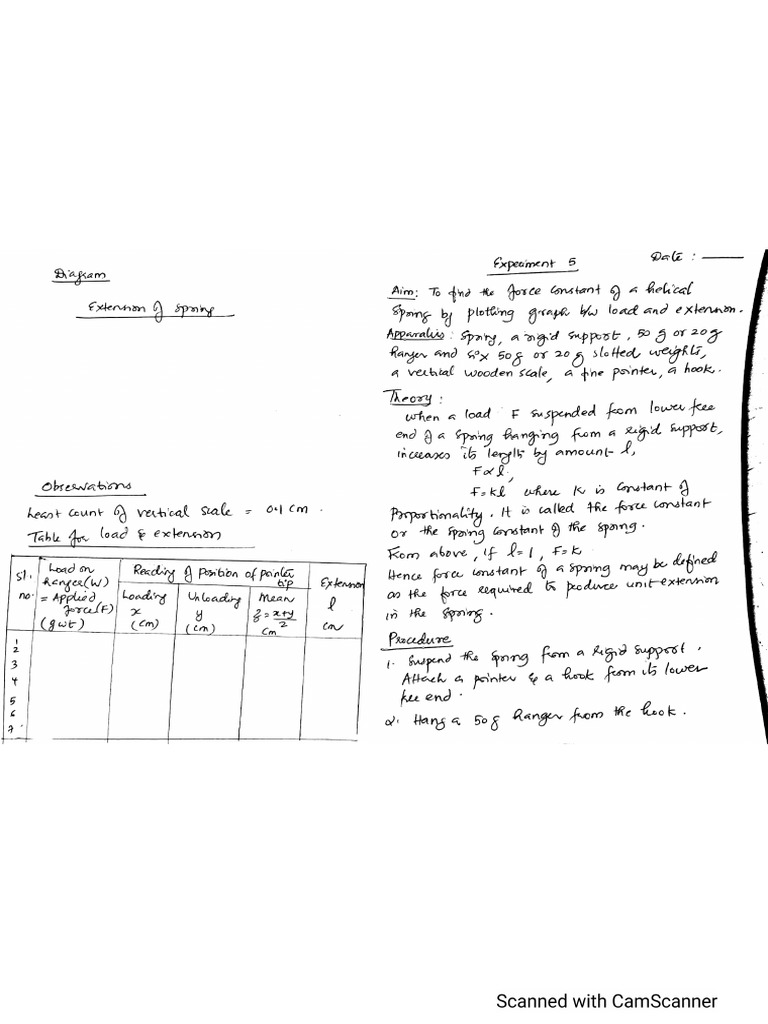 Diagram
Extension of Spring
Observations
Least count of vertical scale = 0.1 cm.
Table for load & extension
Sl. no.
Load on hanger(W) = Applied force(F) (g wt)
Reading of Position of pointer tip
Loading x (cm)
Unloading y (cm)
Mean z = x+y/2 cm
Extension l cm
1
2
3
4
5
6
7.
Date :
Experiment 5
Aim: To find the force constant of a helical
Spring by plotting graph b/w load and extension.
Apparatus: Spring, a rigid support, 50 g or 20 g
hanger and 50 g or 20 g slotted weights,
a vertical wooden scale, a fine pointer, a hook.
Theory:
When a load F suspended from lower free
end of a spring hanging from a rigid support,
increases its length by amount l,
F∝l,
F=kl where K is constant of
Proportionality. It is called the force constant
or the spring constant of the spring.
From above, if l=1, F=k.
Hence force constant of a spring may be defined
as the force required to produce unit extension
in the spring.
Procedure
1. Suspend the spring from a rigid support.
Attach a pointer & a hook from its lower
free end.
2. Hang a 50 g hanger from the hook.
Scanned with CamScanner